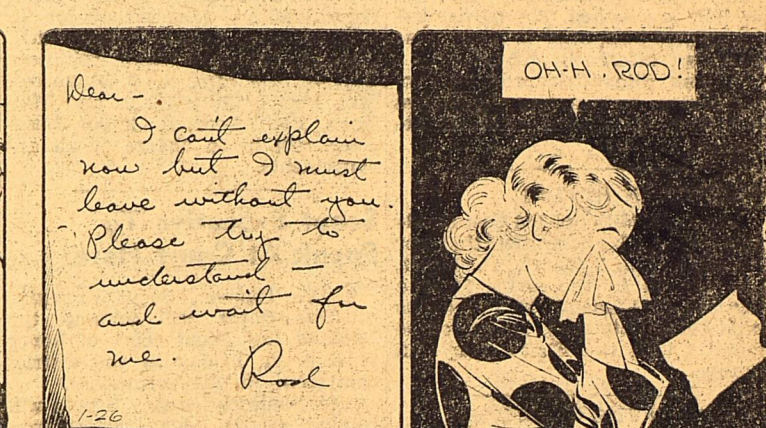 Dear -
I can't explain
now but I must
leave without you.
Please try to
understand -
and wait for
me.
Rod
1-26
OH-H, ROD!